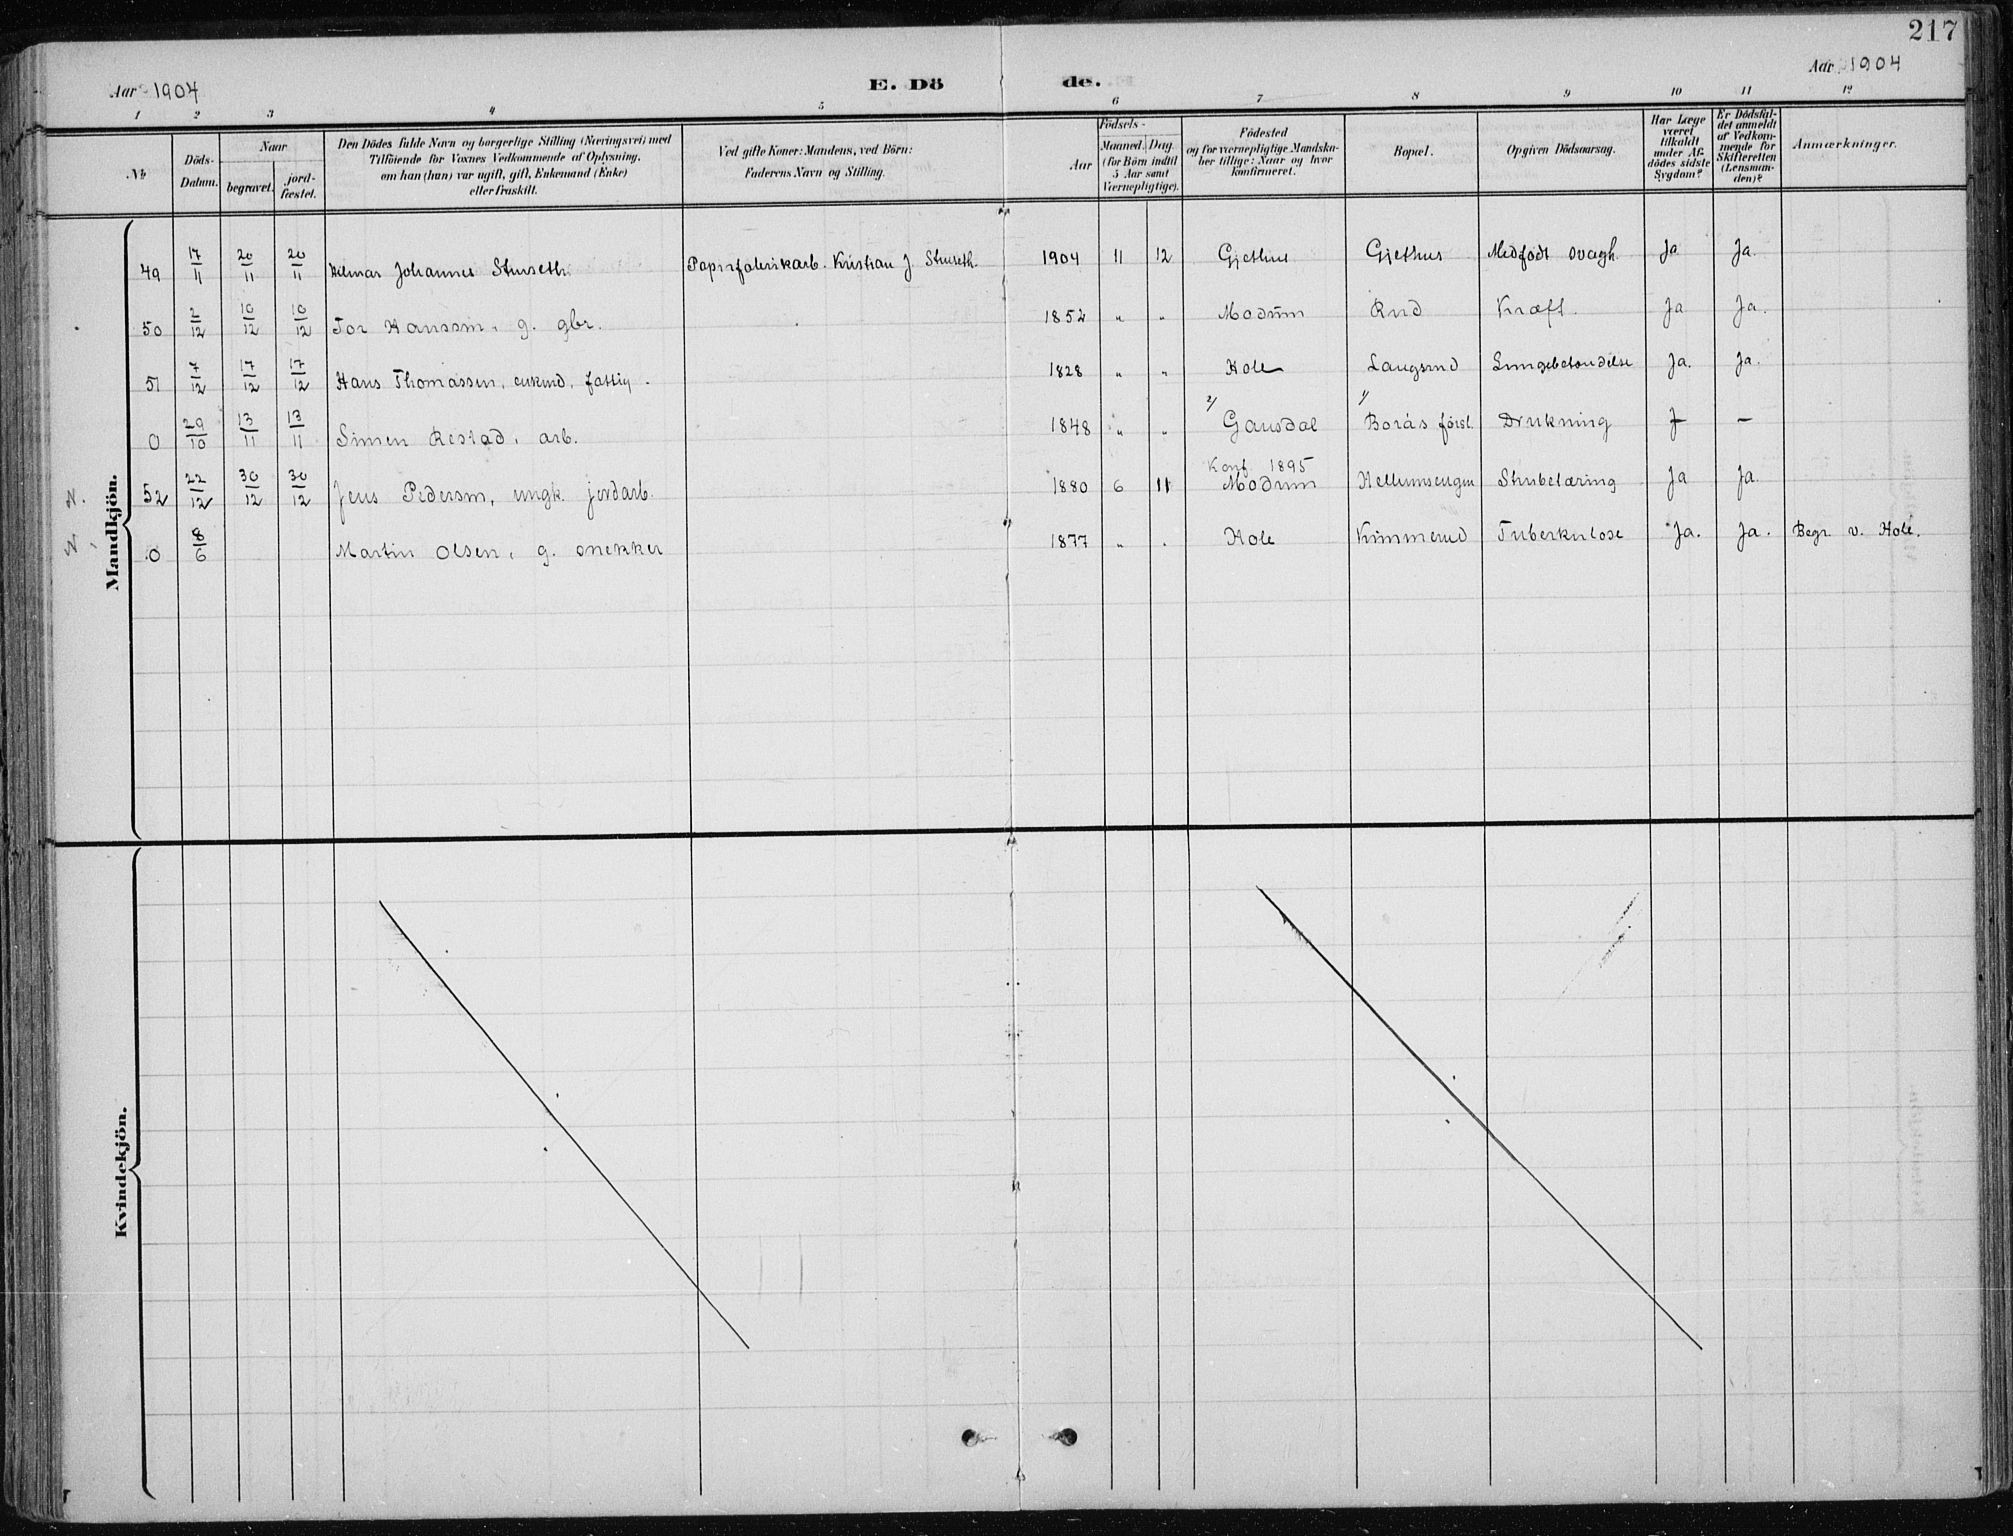 217
Aar 1904
E. Dö de.
Aar 1904
1 2 3 4 5 6 7 8 9 10 11 12
№
Döds-
Datum.
Naar
begravet.
jord-
fæstet.
Den Dödes fulde Navn og borgerlige Stilling (Næringsvei) med
Tilföiende for Voxnes Vedkommende af Oplysning,
om han (hun) var ugift, gift, Enkemand (Enke)
eller fraskilt.
Ved gifte Koner: Mandens, ved Börn:
Faderens Navn og Stilling.
Födsels-
Aar
Maaned. Dag.
(for Börn indtil
5 Aar samt
Værnepligtige).
Födested
og for værnepligtige Mandska-
ber tillige: Naar og hvor
konfirmeret.
Bopæl.
Opgiven Dödsaarsag.
Har Læge
været
tilkaldt
under Af-
dödes sidste
Sygdom?
Er Dödsfal-
det anmeldt
af Vedkom-
mende for
Skifteretten
(Lensman-
den)?
Anmærkninger.
Mandkjön.
49 17/11 20/11 20/11 Hilmar Johannes Stuseth. Papirfabrikarb. Kristian J Stuseth. 1904 11 12 Gjethus Gjethus Medfødt svagh. Ja Ja.
50 2/12 10/12 10/12 Tor Hanssøn, g. gbr. 1852 " " Modum Rud Kræft. Ja Ja.
51 7/12 17/12 17/12 Hans Thomassen, enkmd, fattig. 1828 " " Hole Langsrud Lungebetændelse Ja. Ja.
0 29/10 13/11 13/11 Simen Restad, arb. 1848 " " 2/ Gausdal 1/ Borås først. Drukning —
52 22/12 30/12 30/12 Jens Pedersøn, ungk. jordarb. 1880 6 11 Konf. 1895 Modum Hellumsengen Strubetæring Ja Ja.
0 8/6 Martin Olsen, g. snekker 1877 " " Hole Kimmerud Tuberkulose Ja. Ja. Begr. v. Hole.
Kvindekjön.